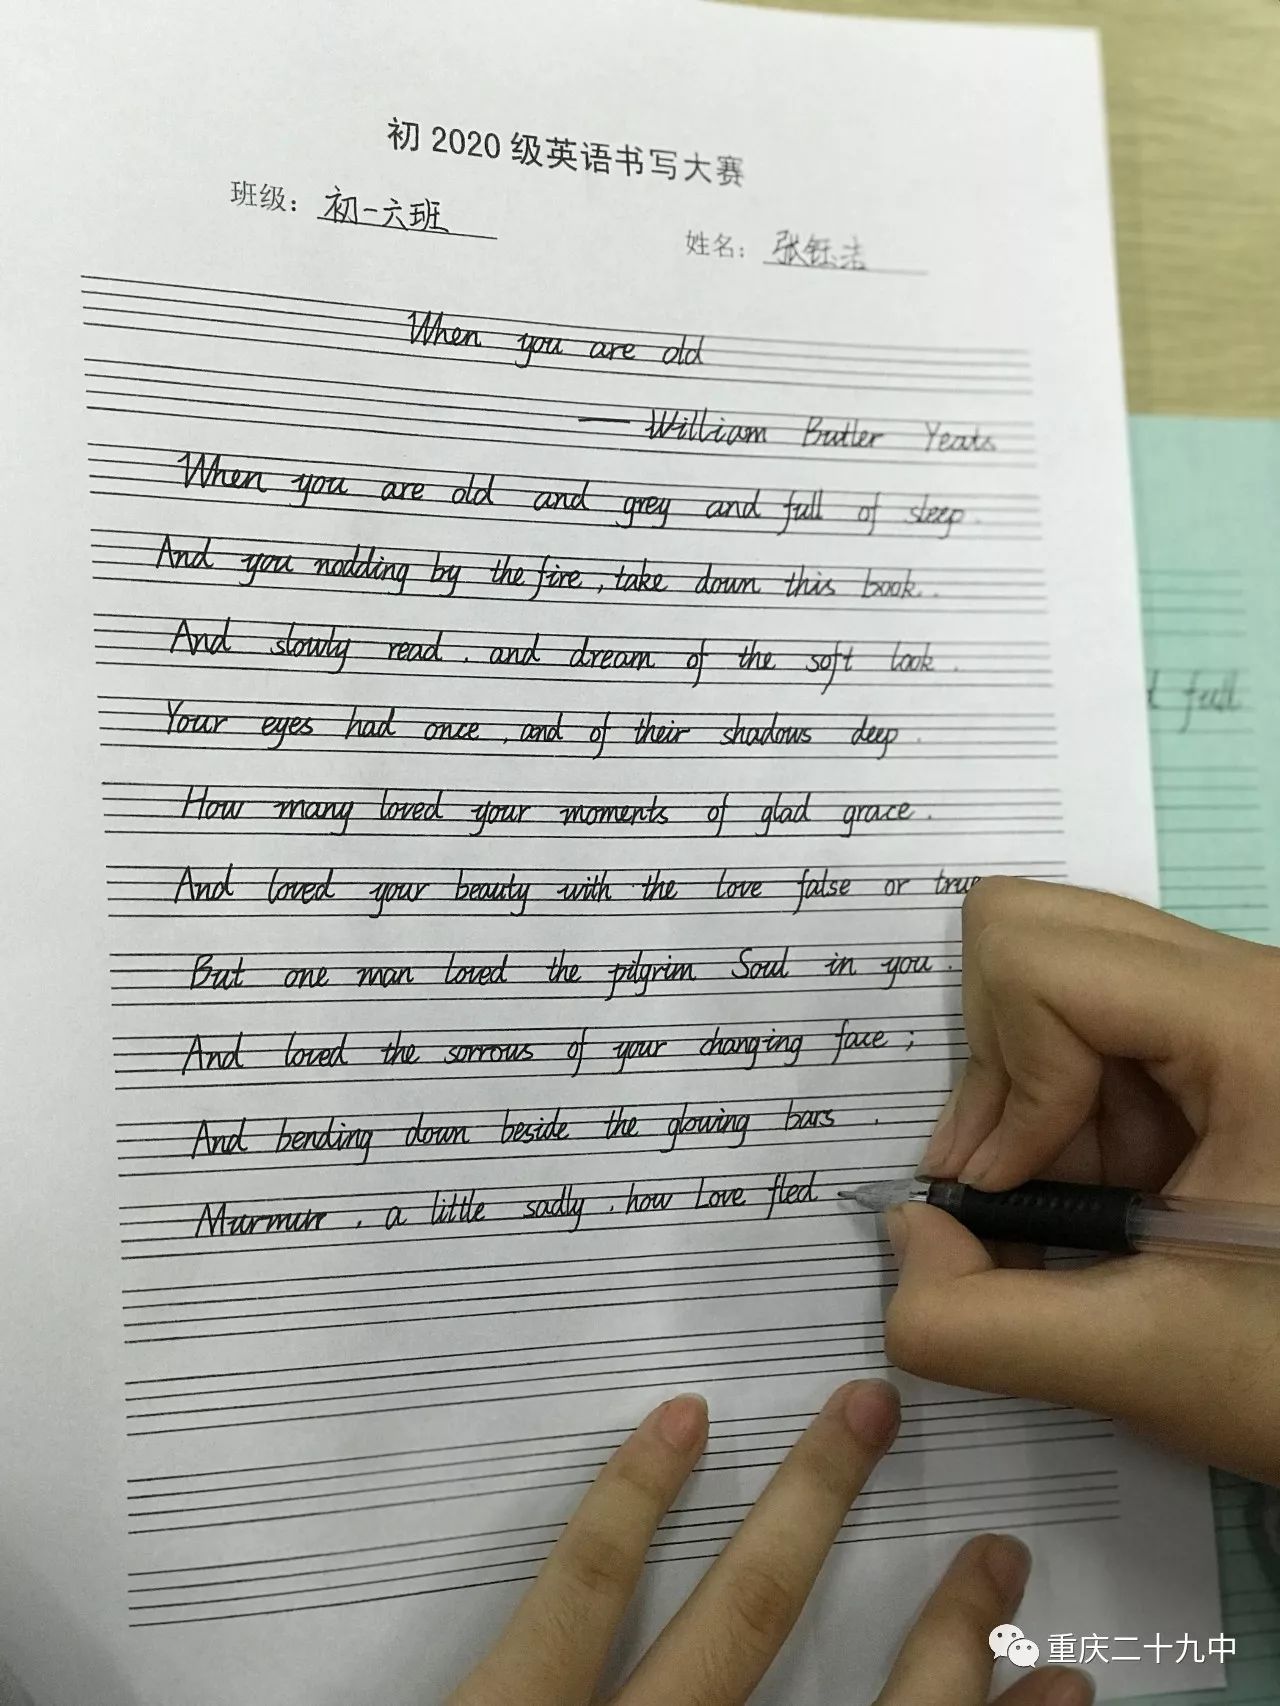 初 2020 级英语书写大赛
班级：初一六班
姓名：张钰洁
When you are old
— William Butler Yeats
When you are old and grey and full of sleep.
And you nodding by the fire, take down this book.
And slowly read, and dream of the soft look.
Your eyes had once, and of their shadows deep.
How many loved your moments of glad grace.
And loved your beauty with the love false or true
But one man loved the pilgrim Soul in you.
And loved the sorrows of your changing face;
And bending down beside the glowing bars.
Murmur, a little sadly, how Love fled
full
重庆二十九中